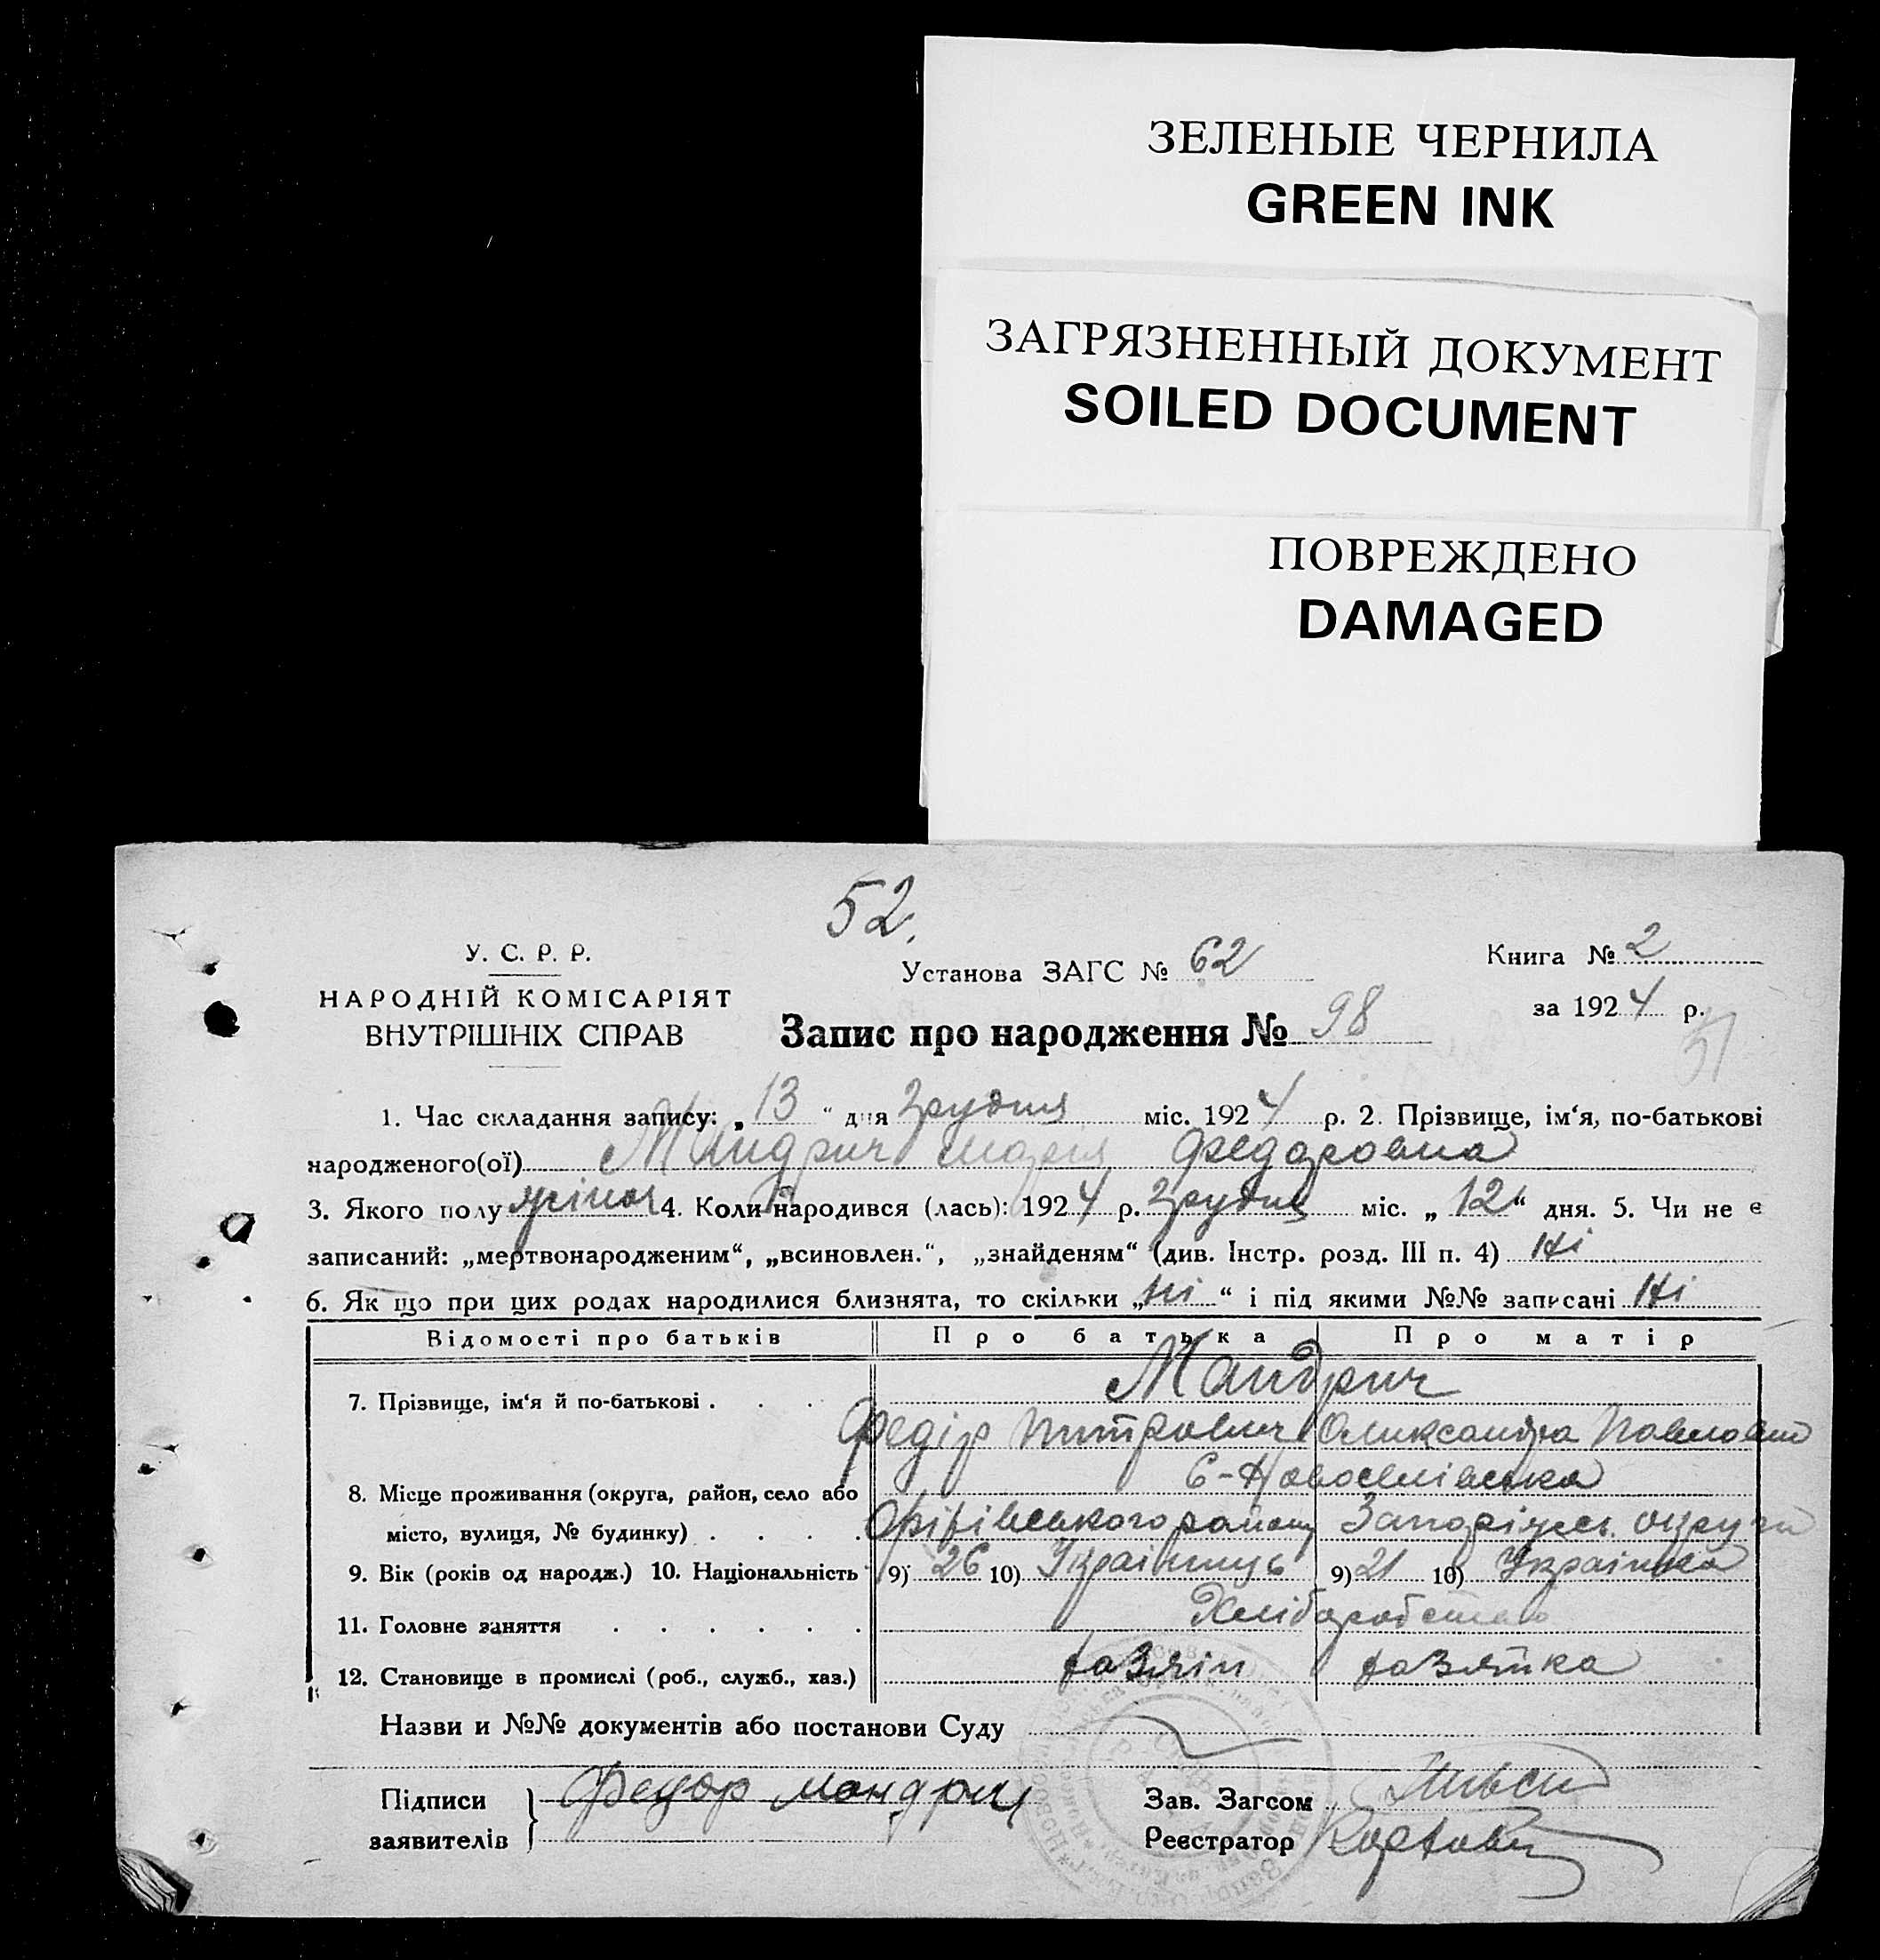 ЗЕЛЕНЫЕ ЧЕРНИЛА
GREEN INK
ЗАГРЯЗНЕННЫЙ ДОКУМЕНТ
SOILED DOCUMENT
ПОВРЕЖДЕНО
DAMAGED
52.
У. С. Р. Р.
НАРОДНІЙ КОМІСАРІЯТ
ВНУТРІШНІХ СПРАВ
Установа ЗАГС № 62
Запис про народження № 98
Книга № 2
за 1924 р.
51
1. Час складання запису: „13“ дня Грудня міс. 1924 р. 2. Прізвище, ім‘я, по-батькові
народженого(ої) Мандрич Марія Федоровна
3. Якого полу жіноч 4. Коли народився (лась): 1924 р. Грудня міс. „12“ дня. 5. Чи не є
записаний: „мертвонародженим“, „всиновлен.“, „знайденям“ (див. Інстр. розд. III п. 4) Ні
6. Як що при цих родах народилися близнята, то скільки „ні“ і під якими №№ записані Ні
Відомості про батьків Про батька Про матір
7. Прізвище, ім‘я й по-батькові . . . Мандрич
Федір Питрович Олександра Павловна
8. Місце проживання (округа, район, село або С-Новоселівська
місто, вулиця, № будинку) . . . . Оріхівського району Запоріжсь. округи
9. Вік (років од народж.) 10. Національність 9) 26 10) Українець 9) 21 10) Українка
11. Головне заняття . . . . . . Хліборобство
12. Становище в промислі (роб., служб., хаз.) хазяїн хазяйка
Назви и №№ документів або постанови Суду
Підписи заявителів Федор Мандрич
Зав. Загсом
Реєстратор